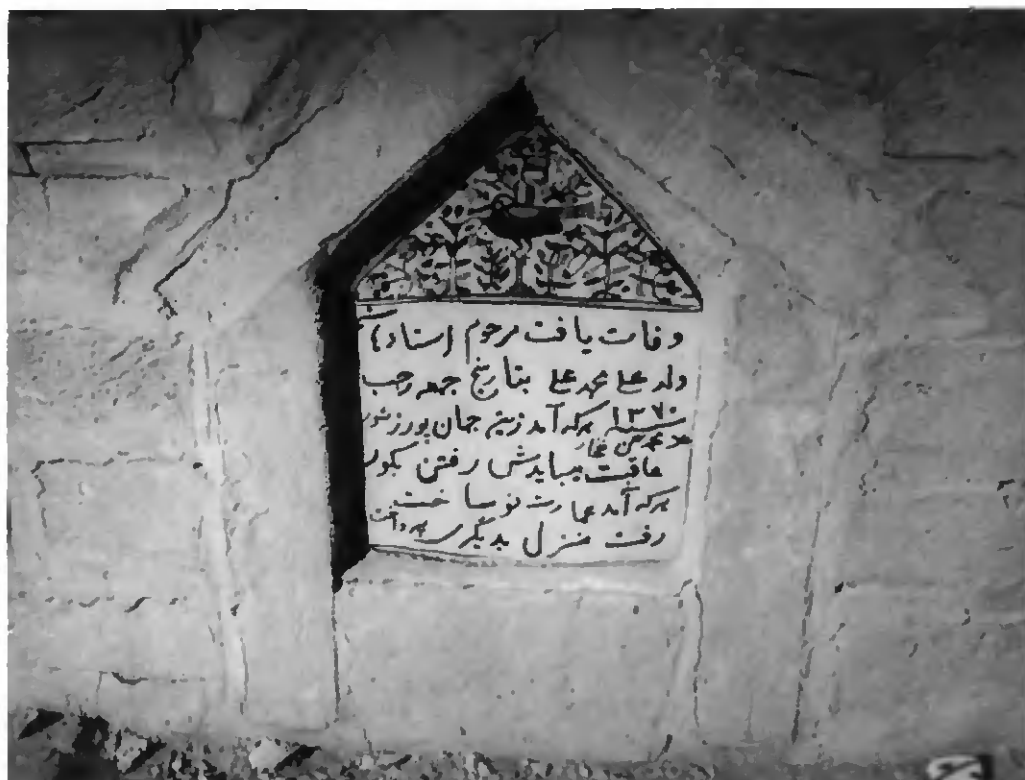 وفات یافت مرحوم (ستاد)
ولد علی محمد علی بتاریخ جمعه رجب
۱۳۷۰ هرکه آمد زین جهان پورزشور
عاقبت میبایدش رفتن بکور
هرکه آمد عمارت نو ساخت
رفت منزل بدیگری پرداخت